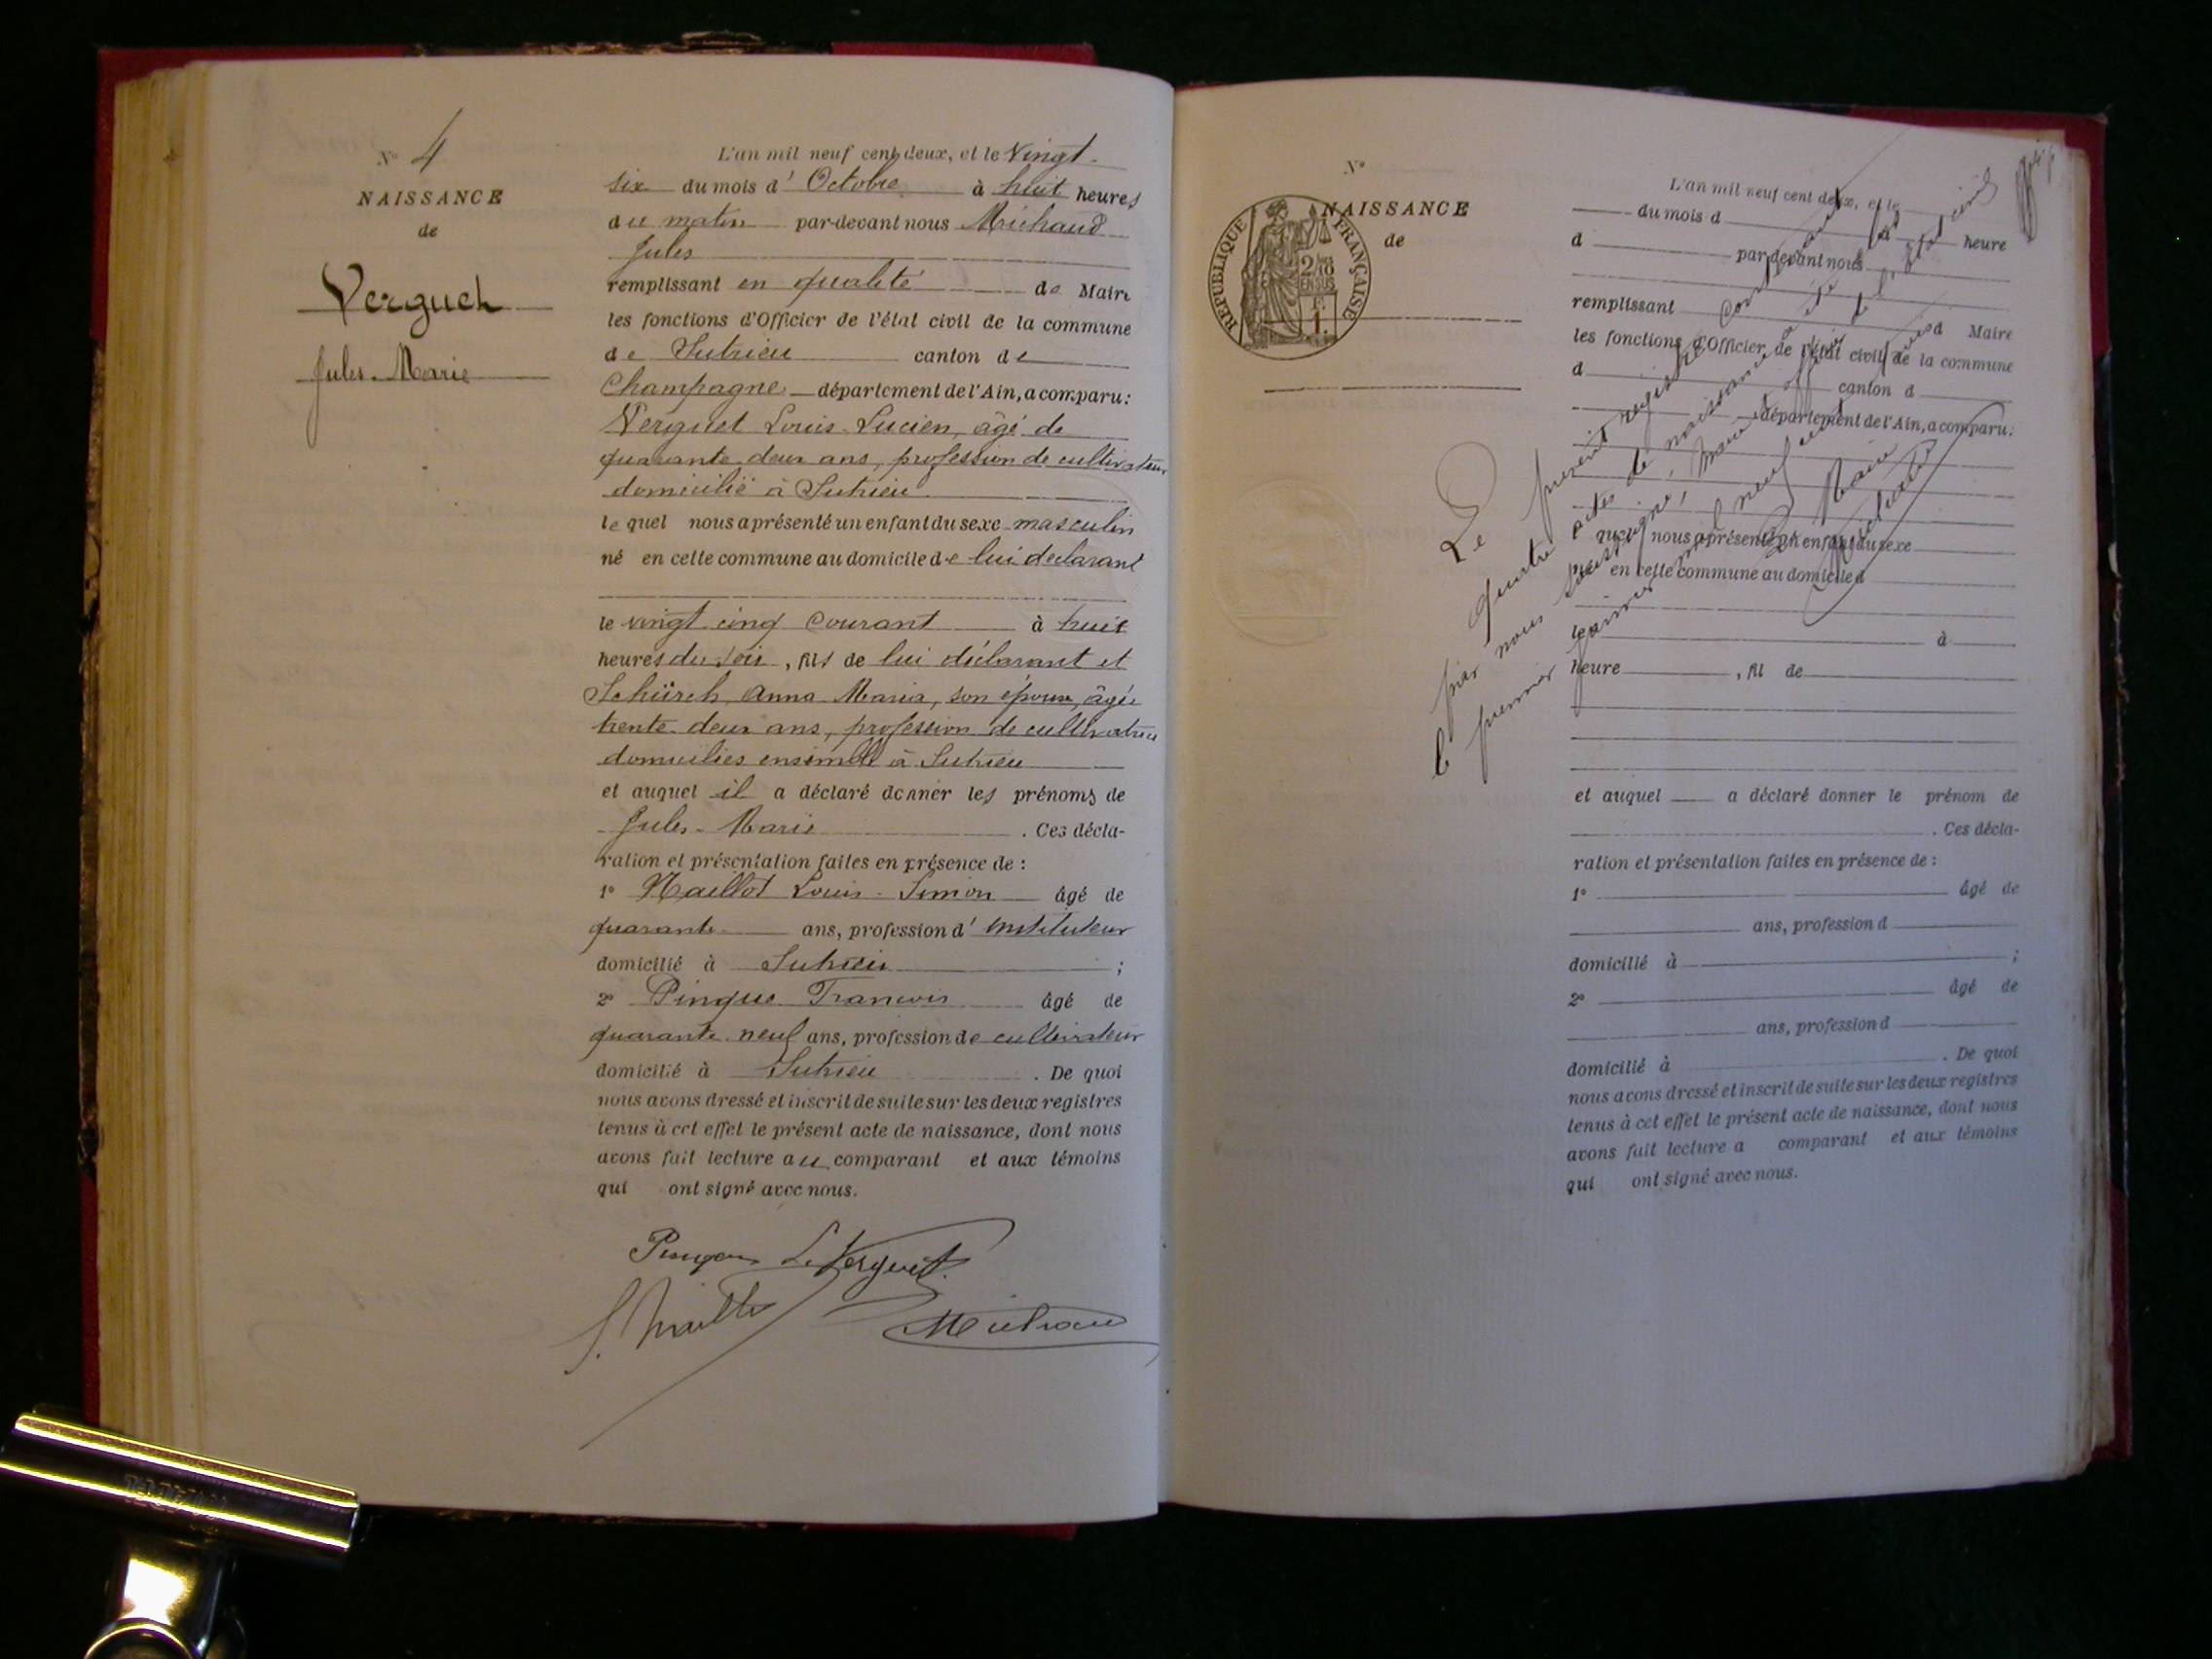 N° 4
NAISSANCE
de
Verguet
Jules-Marie
L'an mil neuf cent deux, et le Vingt-
six du mois d'Octobre à huit heures
du matin par-devant nous Michaud
Jules
remplissant en qualité de Maire
les fonctions d'Officier de l'état civil de la commune
de Sutrieu canton de
Champagne département de l'Ain, a comparu:
Verguet Louis-Lucien, âgé de
quarante deux ans, profession de cultivateur
domicilié à Sutrieu
lequel nous a présenté un enfant du sexe masculin
né en cette commune au domicile de lui déclarant
le vingt cinq courant à huit
heures du soir, fils de lui déclarant et
Schürch Anna Maria, son épouse, âgée
trente deux ans, profession de cultivatrice
domiciliés ensemble à Sutrieu
et auquel il a déclaré donner les prénoms de
Jules-Marie . Ces décla-
ration et présentation faites en présence de :
1° Maillot Louis-Simon âgé de
quarante ans, profession d'instituteur
domicilié à Sutrieu ;
2° Pingue Francois âgé de
quarante neuf ans, profession de cultivateur
domicilié à Sutrieu . De quoi
nous avons dressé et inscrit de suite sur les deux registres
tenus à cet effet le présent acte de naissance, dont nous
avons fait lecture au comparant et aux témoins
qui ont signé avec nous.
L. Verguet
Michaud
N°
NAISSANCE
de
REPUBLIQUE FRANÇAISE
2/10
EN SUS
L'an mil neuf cent deux, et le
du mois d à heure
d par-devant nous
remplissant d Maire
les fonctions d'Officier de l'état civil de la commune
d canton d
département de l'Ain, a comparu:
quel nous a présenté un enfant du sexe
en cette commune au domicile d
le à
heure , fil de
et auquel a déclaré donner le prénom de
. Ces décla-
ration et présentation faites en présence de :
1° âgé de
ans, profession d
domicilié à ;
2° âgé de
ans, profession d
domicilié à . De quoi
nous avons dressé et inscrit de suite sur les deux registres
tenus à cet effet le présent acte de naissance, dont nous
avons fait lecture a comparant et aux témoins
qui ont signé avec nous.
Le présent registre contenant
quatre actes de naissance a été clos
par nous soussigné, Maire et officier de l'état civil
le premier janvier mil neuf cent
Le Maire
Michaud